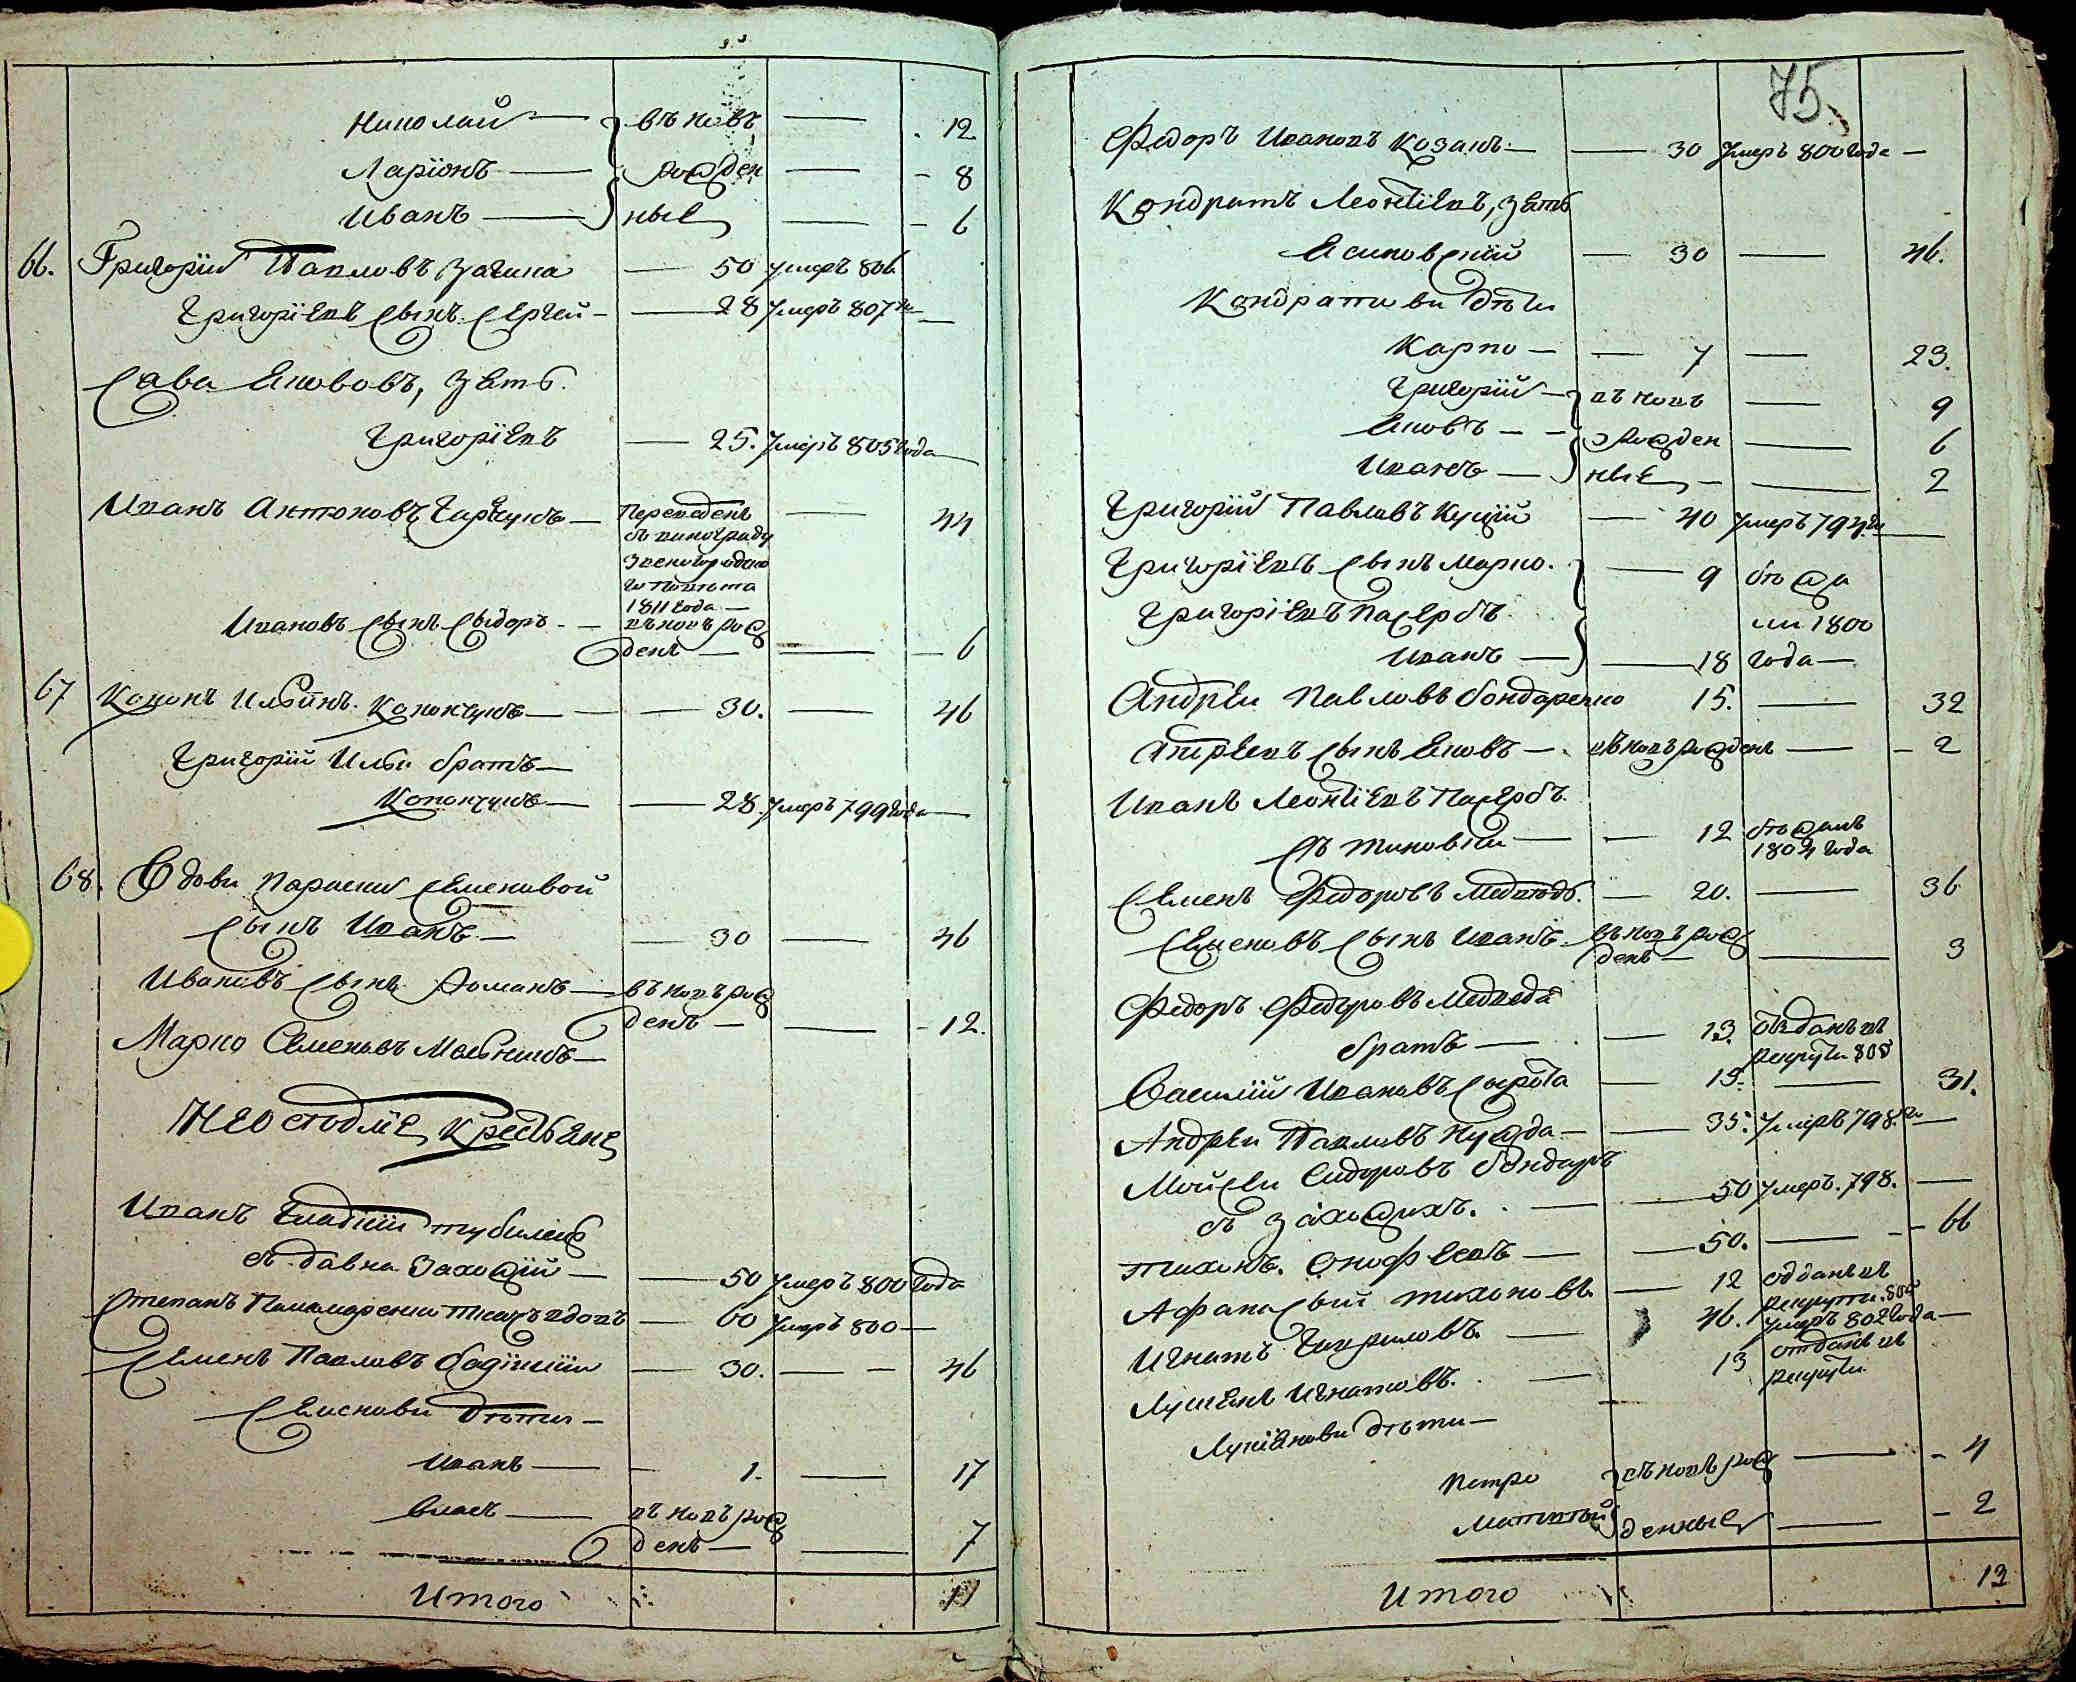 Николай — въ новъ — 12
Ларіонъ — рожден — 8
Иванъ — ные — 6
66. Григорій Павловъ — 50 умеръ 806
Григоріевъ сынъ Сергей — 28 умеръ 807 —
Сава Якововъ, зять
Григоріевъ — 25. умеръ 805 года —
Иванъ Антоновъ — Переведенъ — 44
1811 года —
Ивановъ сынъ Сыдоръ — въ новъ рож
денъ — — 6
67 Кононъ Ильинъ Конончукъ — 30. — 46
Григорій Ильи братъ —
Конончукъ — 28. умеръ 799 года —
68. Вдови Параски Семеновой
сынъ Иванъ — 30 — 46
Ивановъ сынъ Романъ — въ новъ рож
денъ — — 12.
Марко Семеновъ —
Крестьяне
Иванъ
съ давна Захожій — 50 умеръ 800 года
Степанъ — 60 умеръ 800 —
Семенъ Павловъ — 30. — 46
Семенови дѣти —
Иванъ — 1. — 17
Власъ — въ новъ рож
денъ — — 7
Итого 11
75.
Федоръ Ивановъ Козакъ — 30 умеръ 800 года —
Кондратъ Леонтіевъ, зять
— 30 — 46.
Кондративи дѣти
Карпо — 7 — 23.
Григорій — въ новъ — 9
Яковъ — рожден — 6
Иванъ — ные — 2
Григорій Павловъ Куцій — 40 умеръ 794 —
Григоріевъ сынъ Марко. — 9 бѣжа
Григоріевъ Пасербъ ли 1800
Иванъ — 18 года —
Андрей Павловъ Бондаренко 15. — 32
Андреевъ сынъ Яковъ — въ новъ рожденъ — 2
Иванъ Леонтіевъ Пасербъ
— 12 бѣжалъ
1804 года
Семенъ Федоровъ Медведь. — 20. — 36
Семеновъ сынъ Иванъ — въ новъ рож
денъ — — 3
Федоръ Федоровъ Медведя
братъ — 13. отданъ въ
рекруты 808
Василій Ивановъ Сирота — 15. — 31.
Андрей Павловъ Нужда — 35. умеръ 798. —
Мойсей Сидоровъ Бондаръ
съ захожихъ. — 50 умеръ. 798. —
Тихонъ. Онофреевъ — 50. — 66
Афанасий Тихоновъ — 12 отданъ въ
рекруты. 808
Игнатъ Гавриловъ — 46. умеръ 802 года —
Лукіянъ Игнатовъ. — 13 отданъ въ
рекруты
Лукіянови дѣти —
Петро въ новъ рож — 4
Матвѣй денные — 2
Итого 13